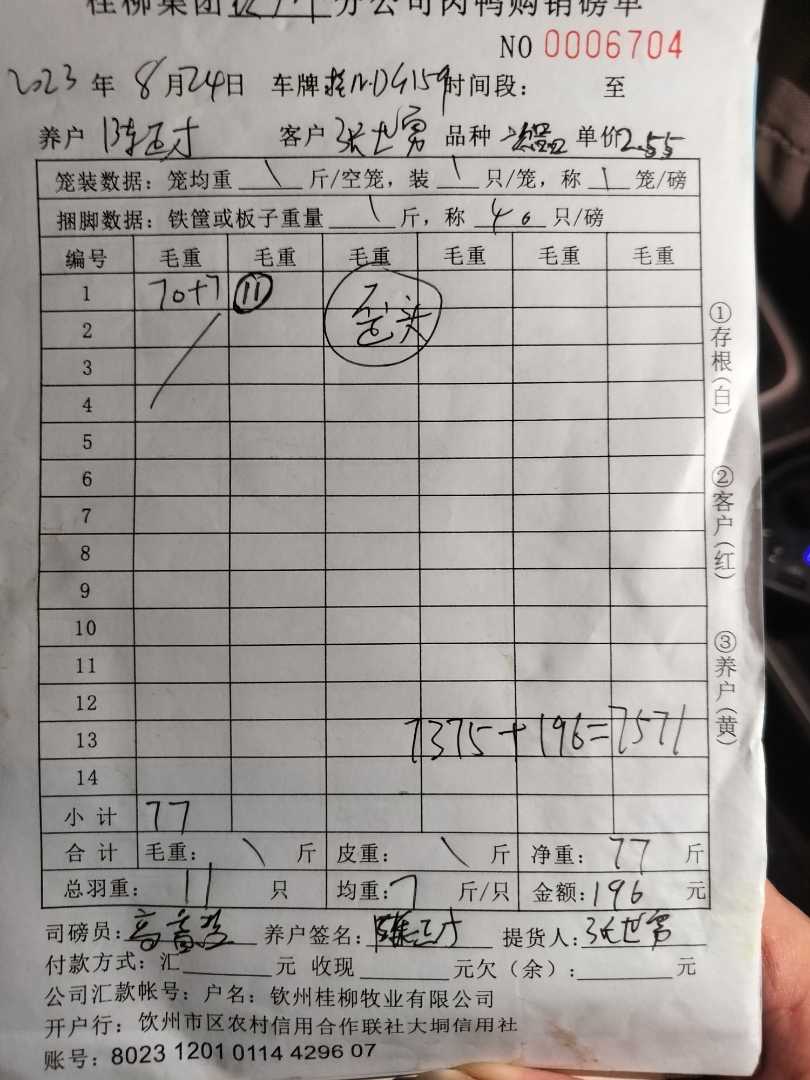 桂柳集团 分公司肉鸭购销磅单
NO 0006704
2023年 8月24日 车牌 时间段： 至
养户 陈 才 客户 张世富 品种 单价2.55
笼装数据：笼均重 \ 斤/空笼，装 \ 只/笼，称 \ 笼/磅
捆脚数据：铁筐或板子重量 \ 斤，称 40 只/磅
编号 毛重 毛重 毛重 毛重 毛重 毛重
1 70+7 ⑪
2
3
4
5
6
7
8
9
10
11
12
13 7375+196=7571
14
小计 77
合计 毛重： \ 斤 皮重： \ 斤 净重： 77 斤
总羽重： 11 只 均重：7 斤/只 金额：196 元
司磅员： 养户签名：陈 才 提货人：张世富
付款方式：汇 元 收现 元欠（余）： 元
公司汇款帐号：户名：钦州桂柳牧业有限公司
开户行：钦州市区农村信用合作联社大垌信用社
账号：8023 1201 0114 4296 07
①存根（白）
②客户（红）
③养户（黄）